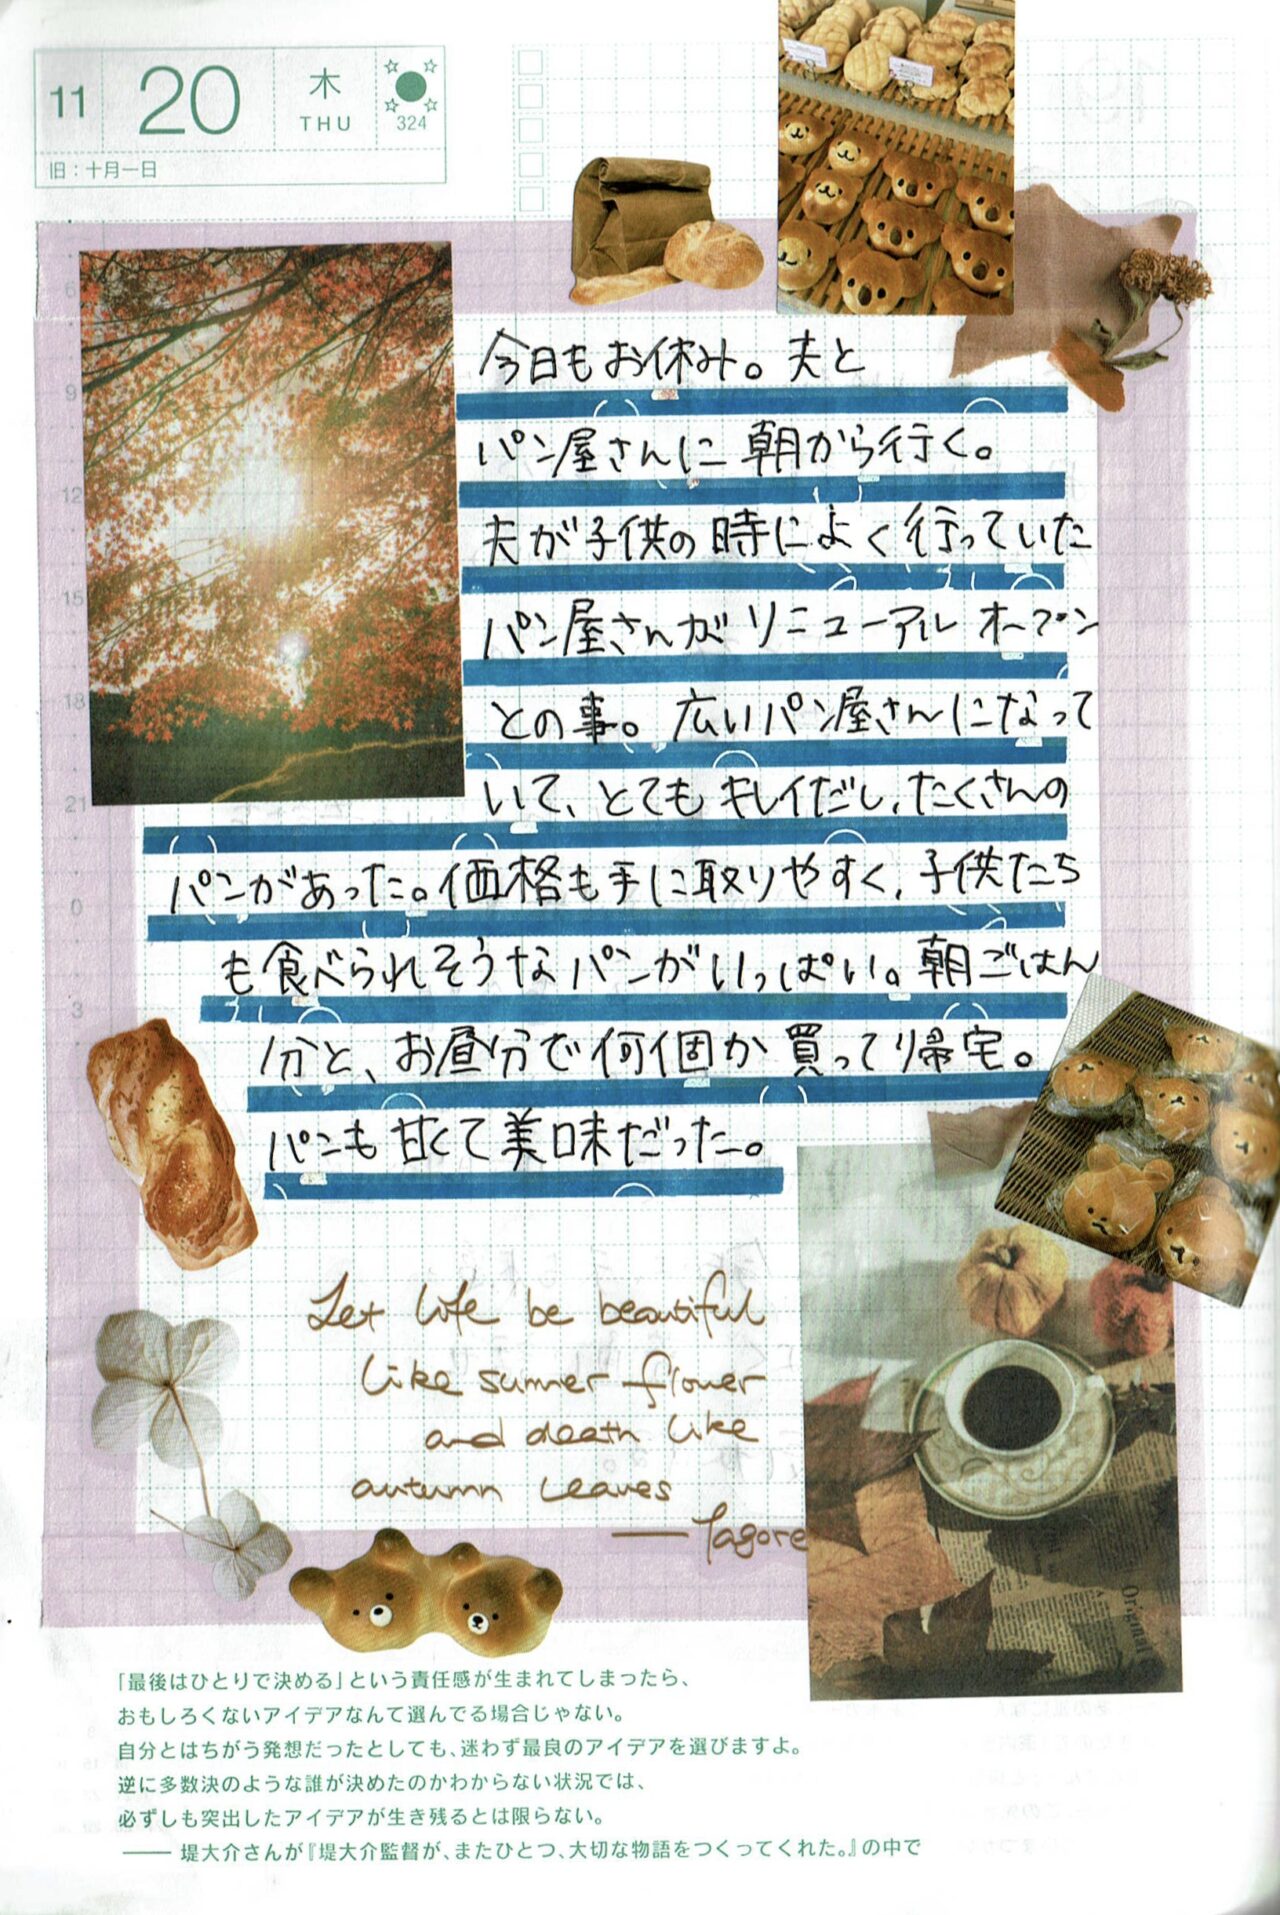 11
20
木
THU
324
旧：十月一日
6
9
12
15
18
21
0
3
今日もお休み。夫と
パン屋さんに朝から行く。
夫が子供の時によく行っていた
パン屋さんがリニューアルオープン
との事。広いパン屋さんになって
いて、とてもキレイだし、たくさんの
パンがあった。価格も手に取りやすく、子供たち
も食べられそうなパンがいっぱい。朝ごはん
分と、お昼分で何個か買って帰宅。
パンも甘くて美味だった。
Let life be beautiful
like summer flower
and death like
autumn leaves
— Tagore
Original
「最後はひとりで決める」という責任感が生まれてしまったら、
おもしろくないアイデアなんて選んでる場合じゃない。
自分とはちがう発想だったとしても、迷わず最良のアイデアを選びますよ。
逆に多数決のような誰が決めたのかわからない状況では、
必ずしも突出したアイデアが生き残るとは限らない。
—— 堤大介さんが『堤大介監督が、またひとつ、大切な物語をつくってくれた。』の中で